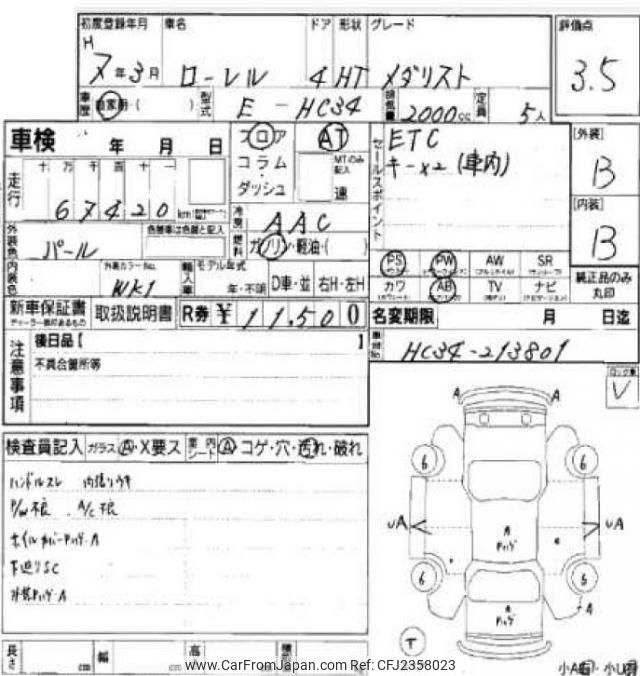 初度登録年月 車名 ドア 形状 グレード 評価点
H 7年3月 ローレル 4 HT メダリスト 3.5
車歴 自家用・( ) 型式 E-HC34 排気量 2000cc 定員 5人
車検 年 月 日 フロア AT ETC [外装]
コラム MTのみ記入 キーx2 (車内) B
ダッシュ 速 セールスポイント
走行 十 万 千 百 十 一
67420 km 冷房 AAC [内装]
外装色 パール 色替車は色替と記入 燃料 ガソリン・軽油・( ) B
内装色 外装カラーNo. WK1 輸入車 モデル年式 年・不明 D車・並 右H・左H
PS PW AW SR
カワ AB TV ナビ 純正品のみ丸印
新車保証書 取扱説明書 R券 ¥ 11,500
名変期限 月 日迄
注意事項 後日品【 】
車台No. HC34-213801
不具合箇所等
V
検査員記入 ガラス A・X要ス 車内シート A コゲ・穴・汚れ・破れ
ハンドルスレ 内張りウキ
P/W不良 A/C不良
ホイルカバーPハゲ・A
下廻りSC
外装Pハゲ・A
A A
6 6
UA A Pハゲ UA
6 6
A Pハゲ A
T
長さ cm 幅 cm 高
www.CarFromJapan.com Ref: CFJ2358023
小A・小U